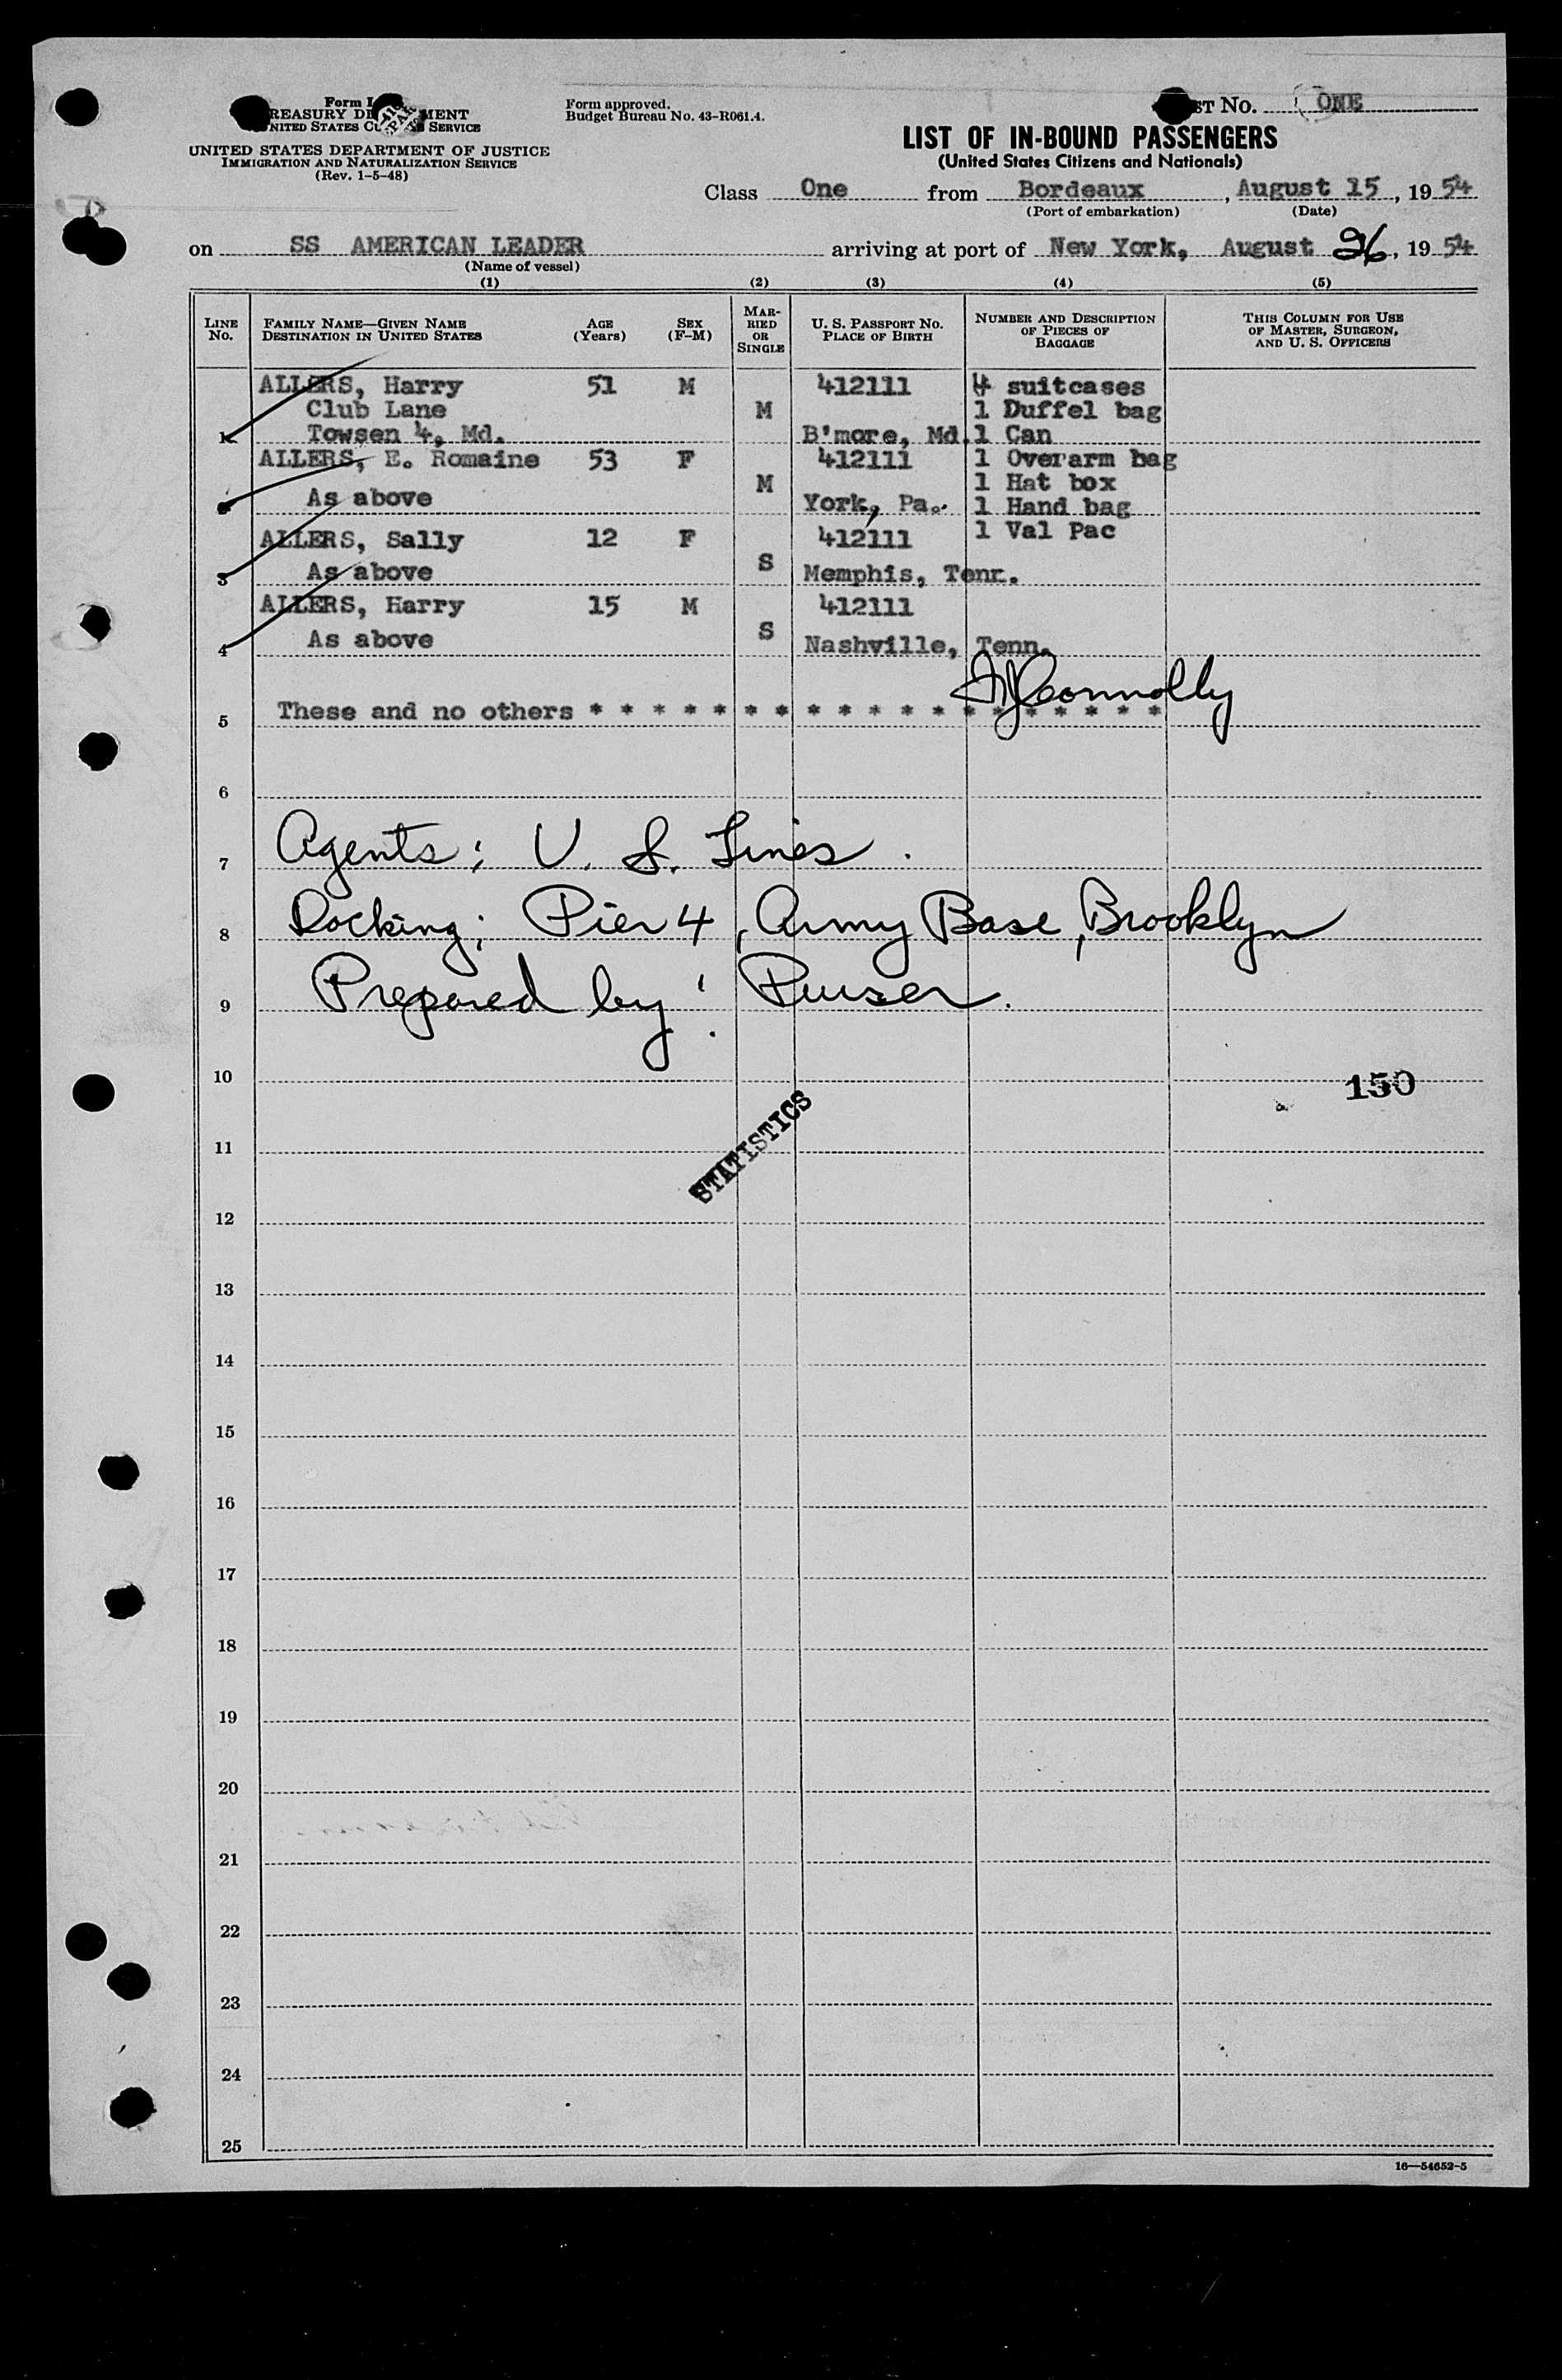 Form I
TREASURY DEPARTMENT
UNITED STATES CUSTOMS SERVICE
UNITED STATES DEPARTMENT OF JUSTICE
IMMIGRATION AND NATURALIZATION SERVICE
(Rev. 1-5-48)
Form approved.
Budget Bureau No. 43-R061.4.
LIST No. ONE
LIST OF IN-BOUND PASSENGERS
(United States Citizens and Nationals)
Class One from Bordeaux, August 15, 1954
(Port of embarkation) (Date)
on SS AMERICAN LEADER arriving at port of New York, August 26, 1954
(Name of vessel)
(1) (2) (3) (4) (5)
LINE No. FAMILY NAME—GIVEN NAME DESTINATION IN UNITED STATES AGE (Years) SEX (F-M) MARRIED OR SINGLE U. S. PASSPORT NO. PLACE OF BIRTH NUMBER AND DESCRIPTION OF PIECES OF BAGGAGE THIS COLUMN FOR USE OF MASTER, SURGEON, AND U. S. OFFICERS
ALLERS, Harry 51 M 412111 4 suitcases
Club Lane M 1 Duffel bag
1 Towsen 4, Md. B'more, Md. 1 Can
ALLERS, E. Romaine 53 F 412111 1 Overarm bag
M 1 Hat box
2 As above York, Pa. 1 Hand bag
ALLERS, Sally 12 F 412111 1 Val Pac
3 As above S Memphis, Tenn.
ALLERS, Harry 15 M 412111
4 As above S Nashville, Tenn.
Connolly
5 These and no others * * * * * * * * * * * * * * * * * * *
6
7 Agents: U. S. Lines.
8 Docking: Pier 4, Army Base, Brooklyn
9 Prepared by: Purser.
10
150
STATISTICS
11
12
13
14
15
16
17
18
19
20
21
22
23
24
25
16—54652-5